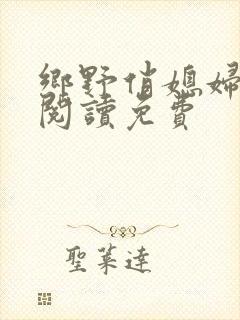 鄉野俏媳婦
閱讀免費
聖萊達